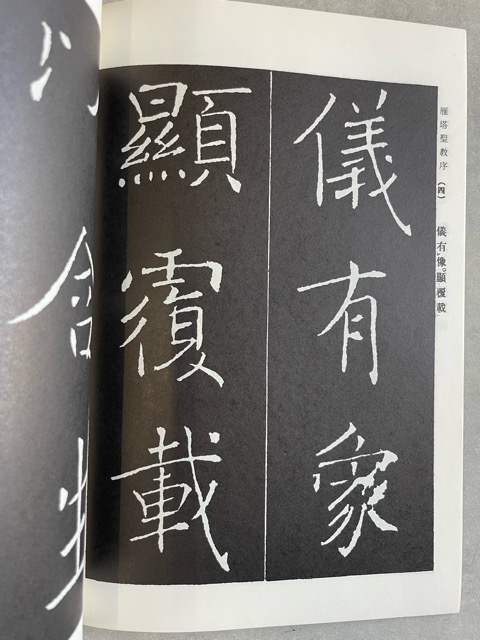 雁塔聖教序（四） 儀有像。顯覆載
儀有象
顯覆載